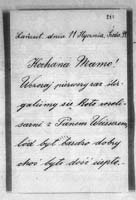 Łańcut, dnia 11 Stycznia, Środa
Kochana Mamo!
Wczoraj pierwszy raz śliz-
galiśmy się
z Panem
lód był bardzo dobry
choć było dość ciepło.